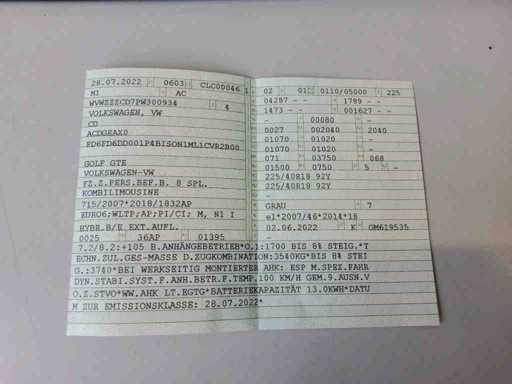 28.07.2022 0603 CLC00046 1
M1 AC
WVWZZZCD7PW300934 4
VOLKSWAGEN, VW
CD
ACDGEAX0
FD6FD6DD001P4BISON1ML1CVR2B00
GOLF GTE
VOLKSWAGEN-VW
FZ.Z.PERS.BEF.B. 8 SPL.
KOMBILIMOUSINE
715/2007*2018/1832AP
EURO6;WLTP;AP;PI/CI; M, N1 I
HYBR.B/E EXT.AUFL.
0025 36AP 01395
02 01 0110/05000 225
04287 - - 1789 - -
1473 - - 001627 - -
- 00080 -
0027 002040 2040
01070 01020 -
01070 01020 -
071 03750 068
01500 0750 5 -
225/40R18 92Y
225/40R18 92Y
-
GRAU 7
e1*2007/46*2014*18
02.06.2022 K GM619535
- -
7.2/8.2:+105 B.ANHÄNGEBETRIEB*O.1:1700 BIS 8% STEIG.*T
ECHN.ZUL.GES-MASSE D.ZUGKOMBINATION:3540KG*BIS 8% STEI
G.:3740*BEI WERKSEITIG MONTIERTER AHK: ESP M.SPEZ.FAHR
DYN.STABI.SYST.F.ANH.BETR.F.TEMP.100 KM/H GEM.9.AUSN.V
O.Z.STVO*WW.AHK LT.EGTG*BATTERIEKAPAZITÄT 13.0KWH*DATU
M ZUR EMISSIONSKLASSE: 28.07.2022*